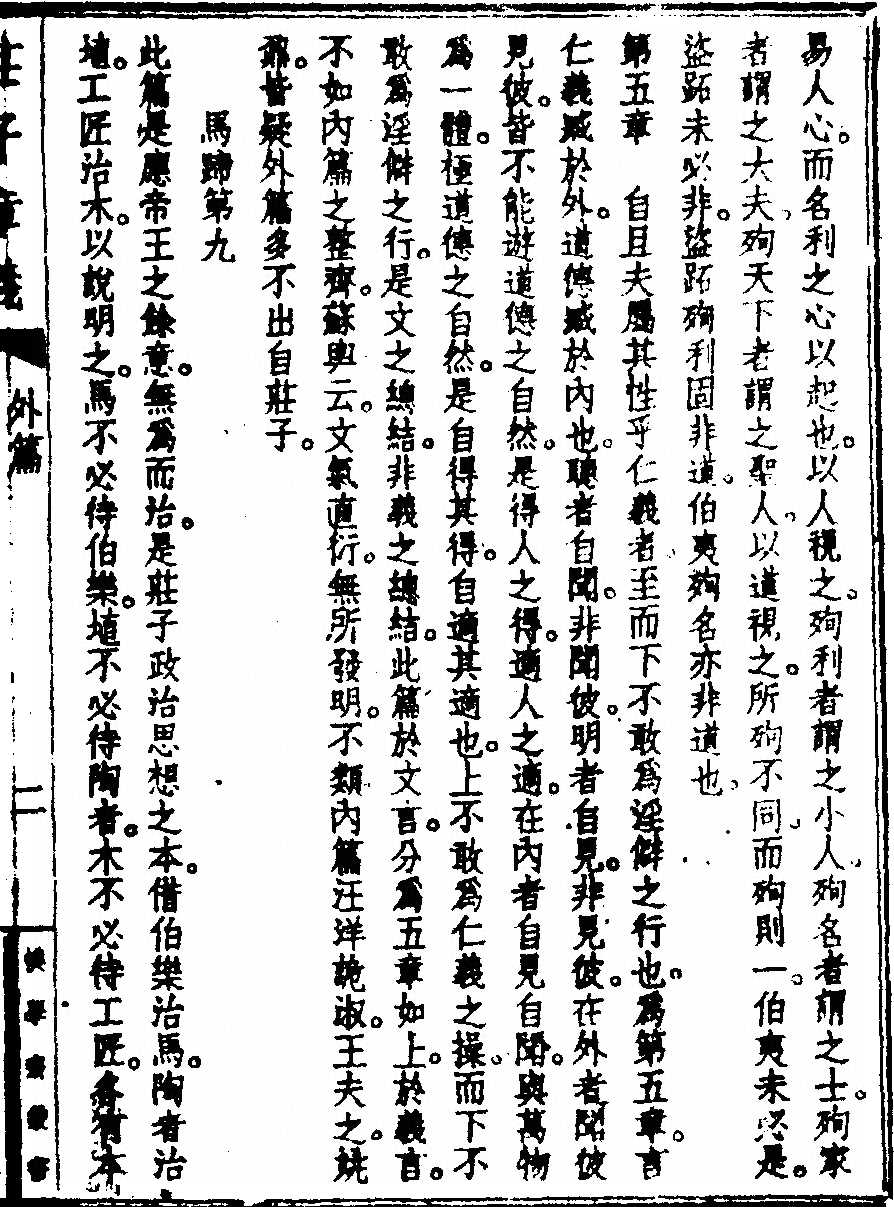 易人心。而名利之心以起也。以人視之。殉利者謂之小人。殉名者謂之士。殉家
者謂之大夫。殉天下者謂之聖人。以道視之。所殉不同。而殉則一。伯夷未必是。
盜跖未必非。盜跖殉利固非道。伯夷殉名亦非道也。
第五章　自且夫屬其性乎仁義者。至而下不敢爲淫僻之行也。爲第五章。言
仁義臧於外。道德臧於內也。聰者自聞。非聞彼。明者自見。非見彼。在外者聞彼
見彼。皆不能遊道德之自然。是得人之得。適人之適。在內者自見自聞。與萬物
爲一體。極道德之自然。是自得其得。自適其適也。上不敢爲仁義之操。而下不
敢爲淫僻之行。是文之總結。非義之總結。此篇於文言。分爲五章如上。於義言。
不如內篇之整齊。蘇輿云。文氣直衍。無所發明。不類內篇汪洋詭淑。王夫之。姚
鼐。皆疑外篇多不出自莊子。
馬蹄第九
此篇是應帝王之餘意。無爲而治。是莊子政治思想之本。借伯樂治馬。陶者治
埴。工匠治木。以說明之。馬不必待伯樂。埴不必待陶者。木不必待工匠。各有本
莊子章義
外篇
二
樸學齋叢書